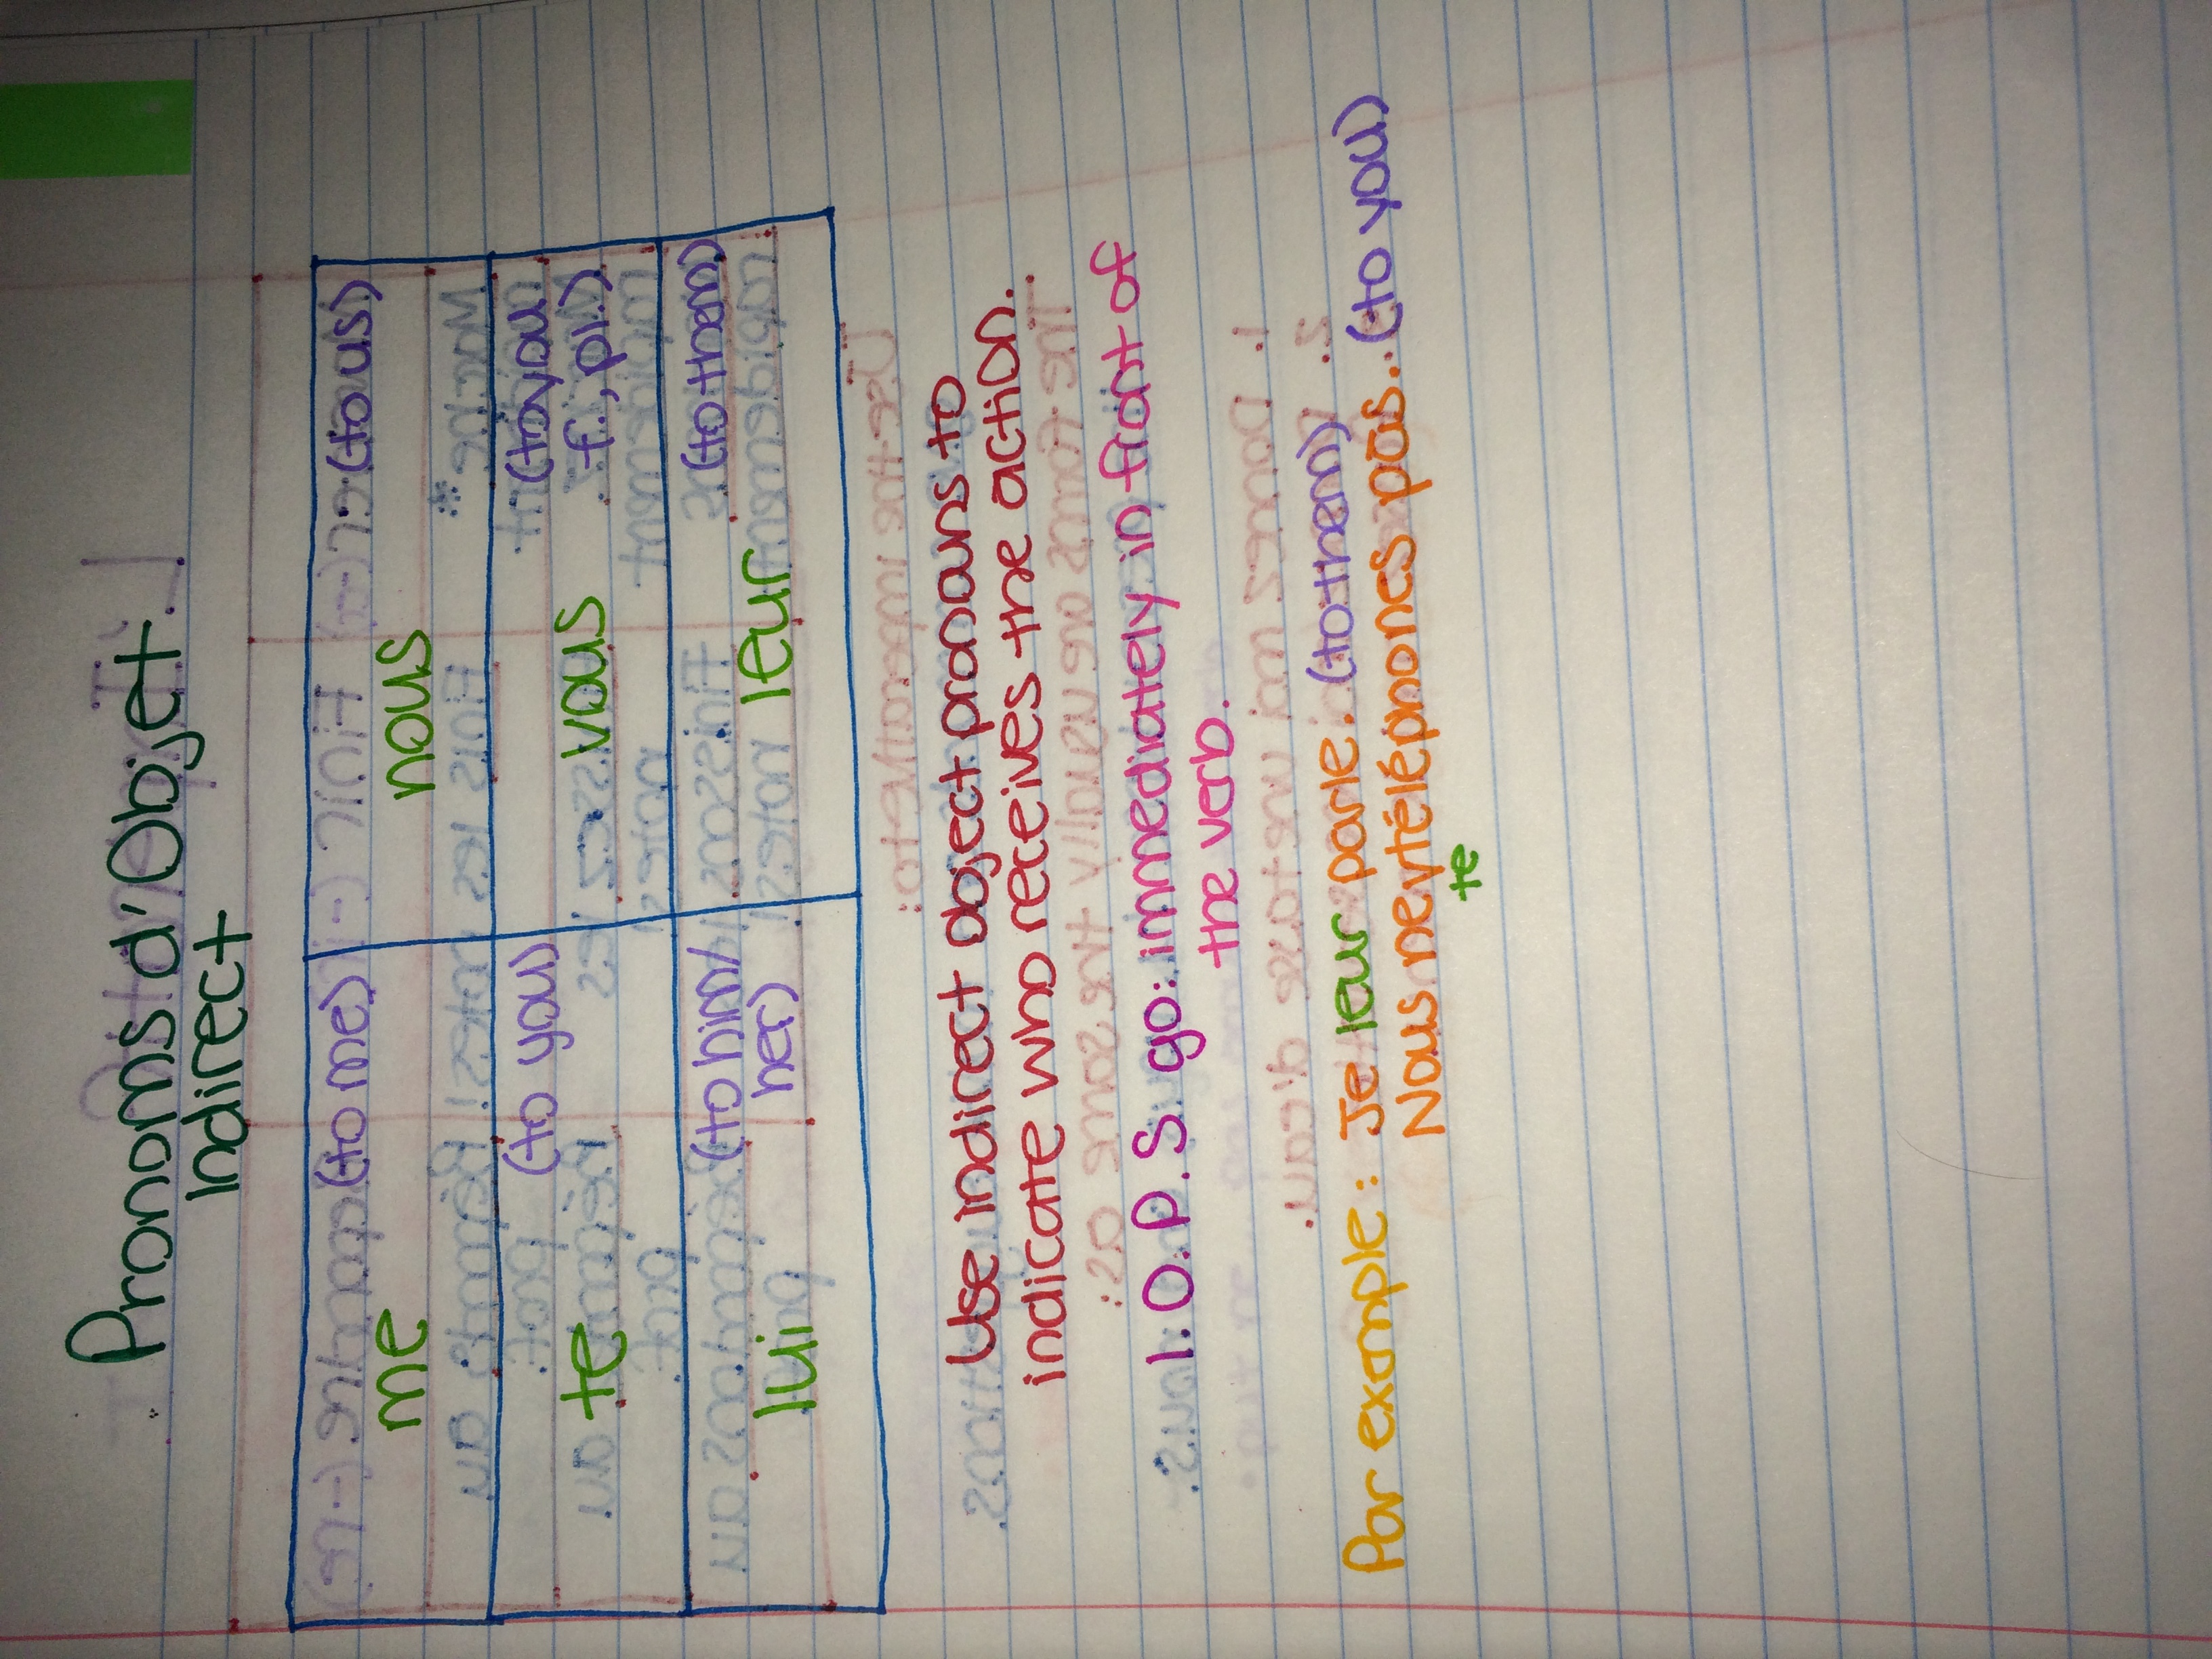 Pronoms d'Objet
Indirect
(to me)
me
(to us)
nous
(to you)
te
(to you
vous f., pl.)
(to him/
lui her)
(to them)
leur
Use indirect object pronouns to
indicate who receives the action.
I. O. P. S. go: immediately in front of
the verb.
Par exemple: Je leur parle. (to them)
Nous ne téléphones pas. (to you)
te